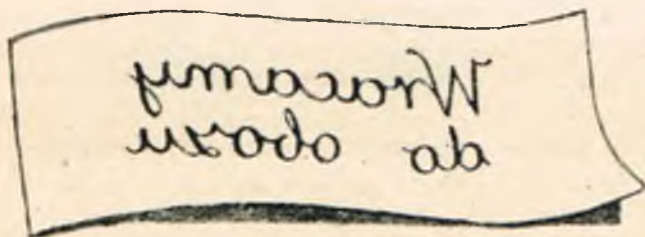 Wracamy
do obozu